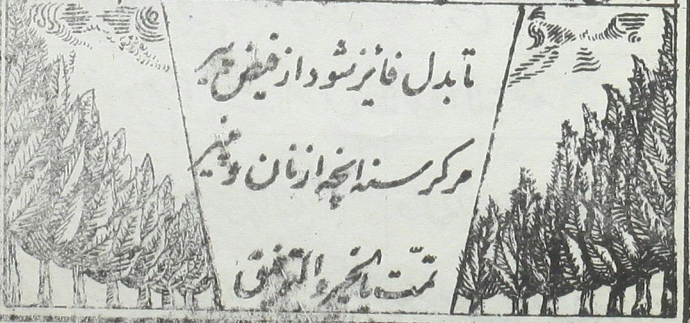 تا بدل فائز شود از فیض پیر
هر گرسنه انچه از نان و پنیر
تمّت بالخیر والتوفیق